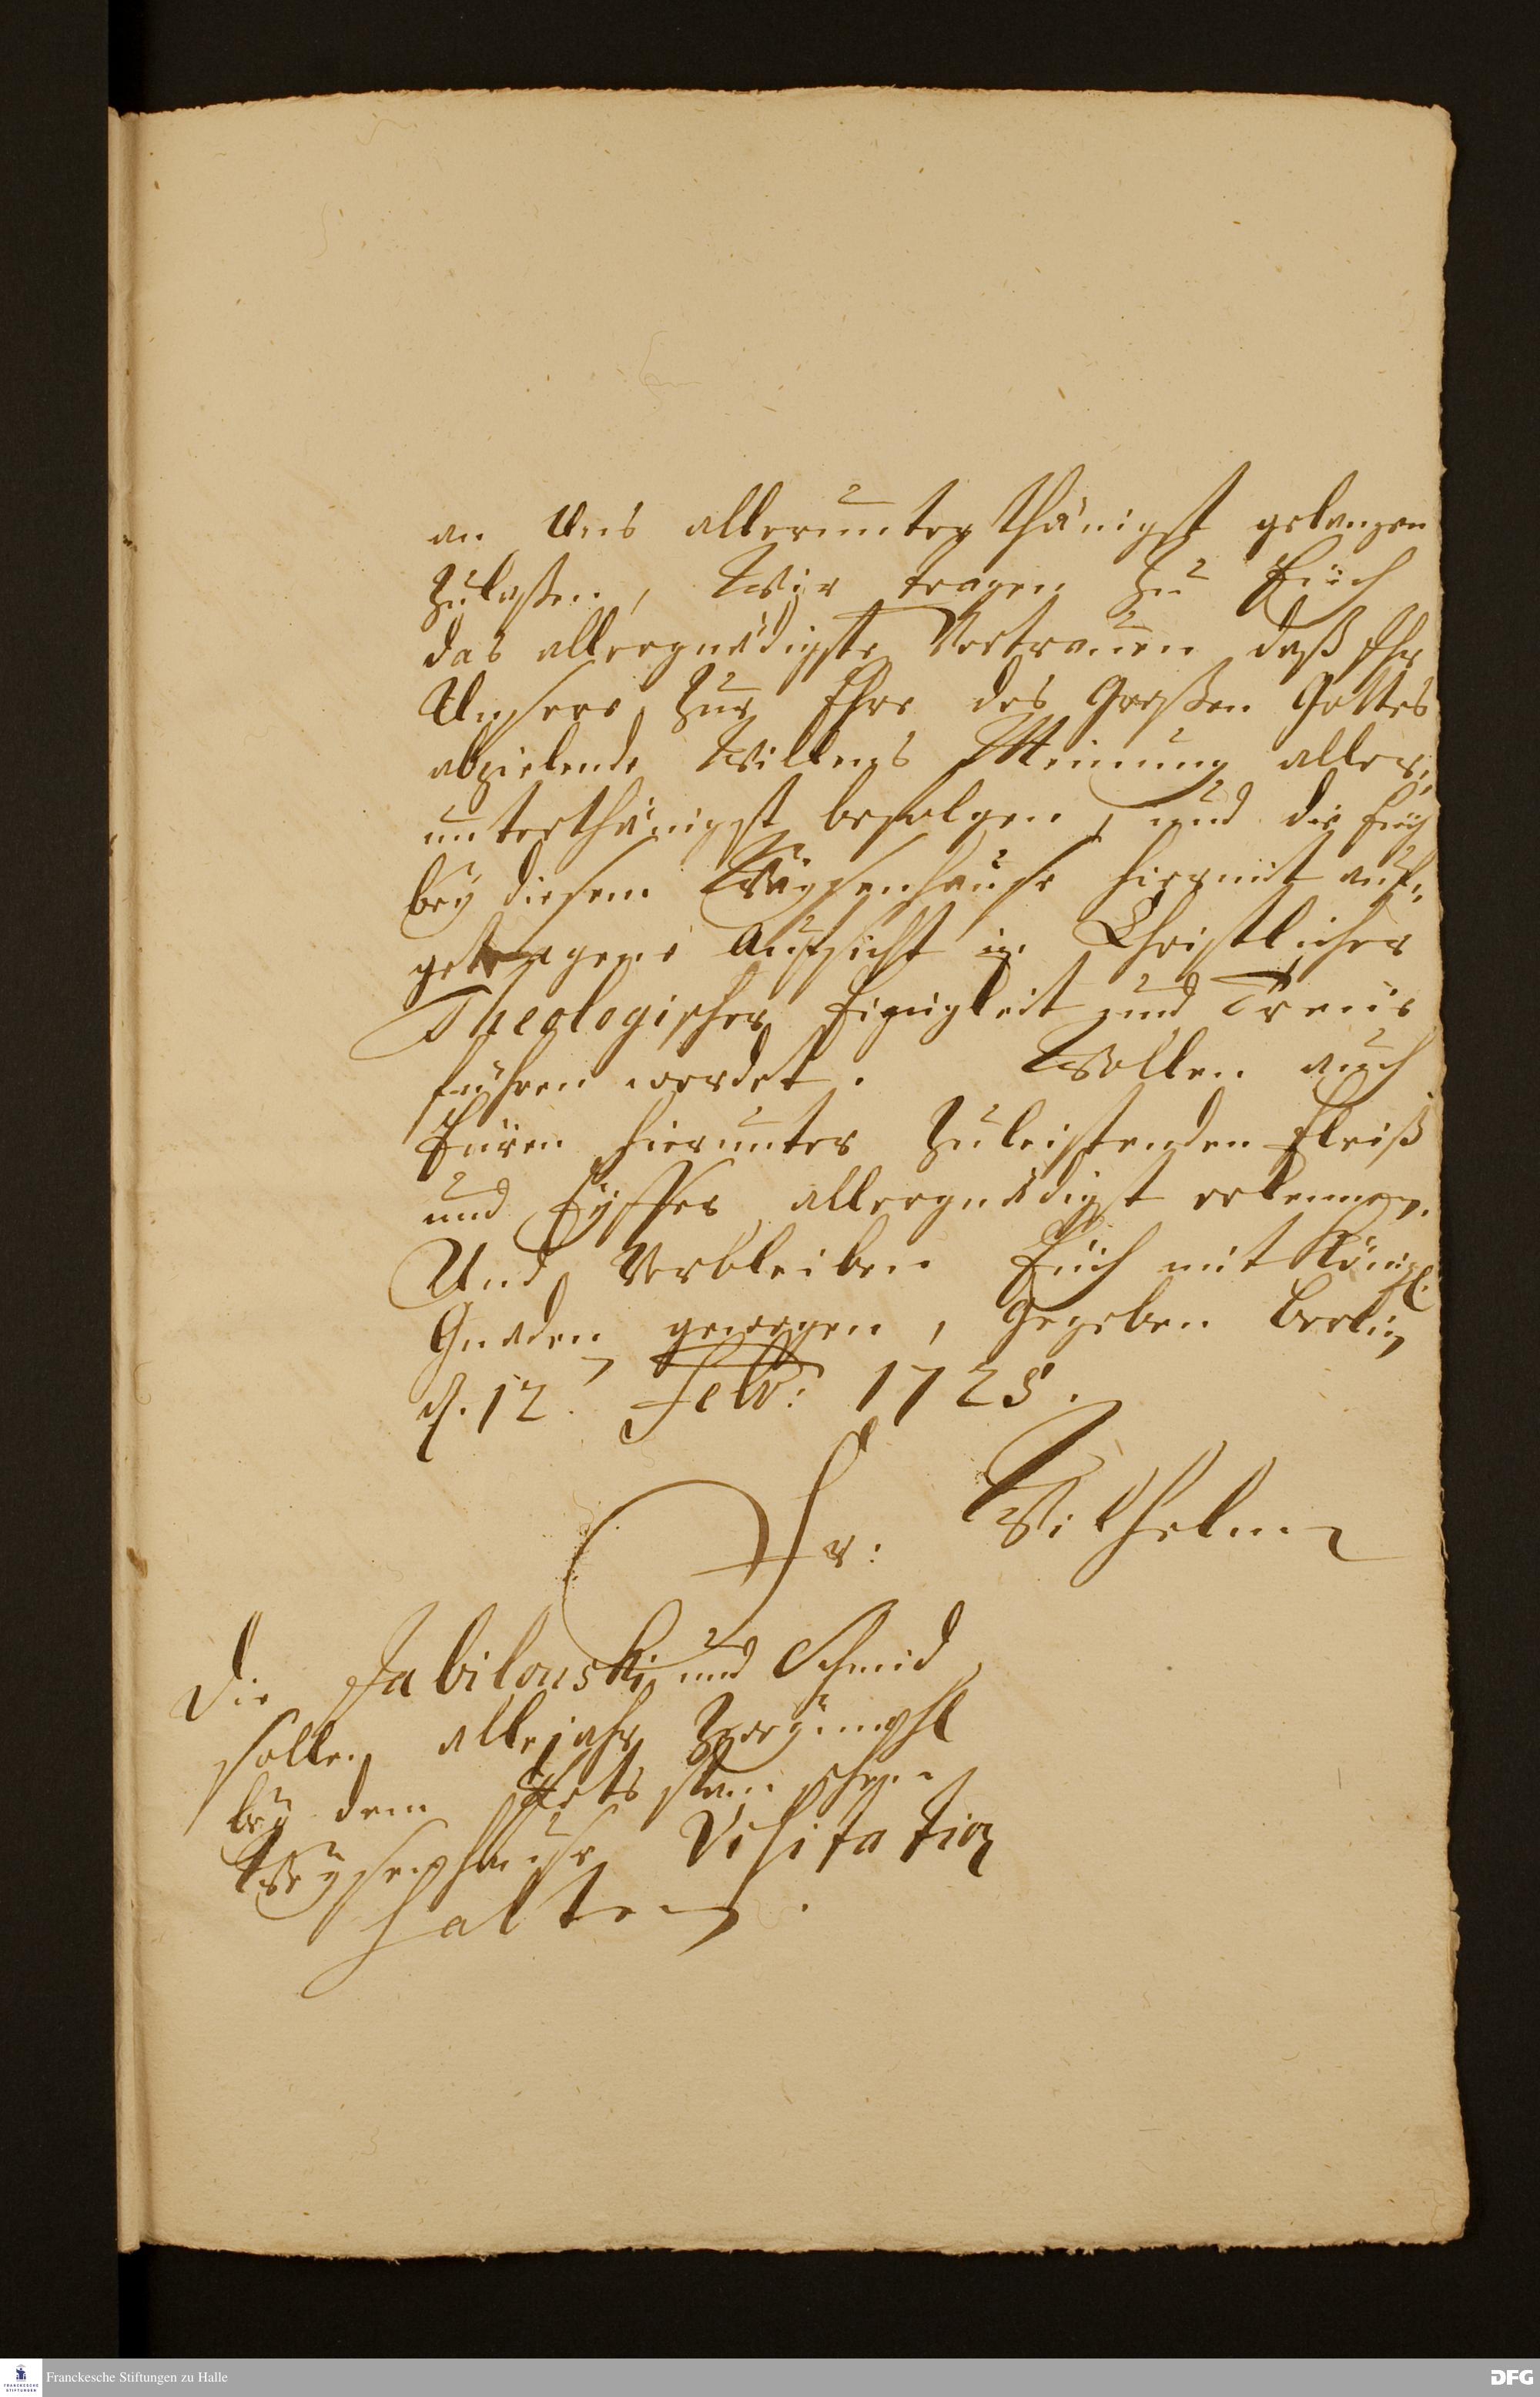 an Uns allerunterthänigst gelangen
zulaßen, Wir tragen zu Euch
das allergnädigste Vertrauen daß Ihr
Unsere zur Ehre des Großen Gottes
abzielende Willens Meinung aller,
unterthänigst befolgen, und die Euch
bey diesem Wäysenhause hiermit auf,
getragene Aufsicht in Christlicher
Theologischer Einigkeit und Treüe
führen werdet. Wollen auch
Eüren hierunter zuleistenden Fleiß
und Eyffer allergnädigst erkennen.
Und Verbleiben Eüch mit Königl.
Gnaden gewogen, Gegeben Berlin
d. 12. Febr: 1725.
Fr: Wilhelm
Die Jabilouski und Schmid
sollen alle jahr Zweymahl
bey dem Potsdamschen
Weysenhause Visitation
halten.
Franckesche Stiftungen zu Halle
DFG